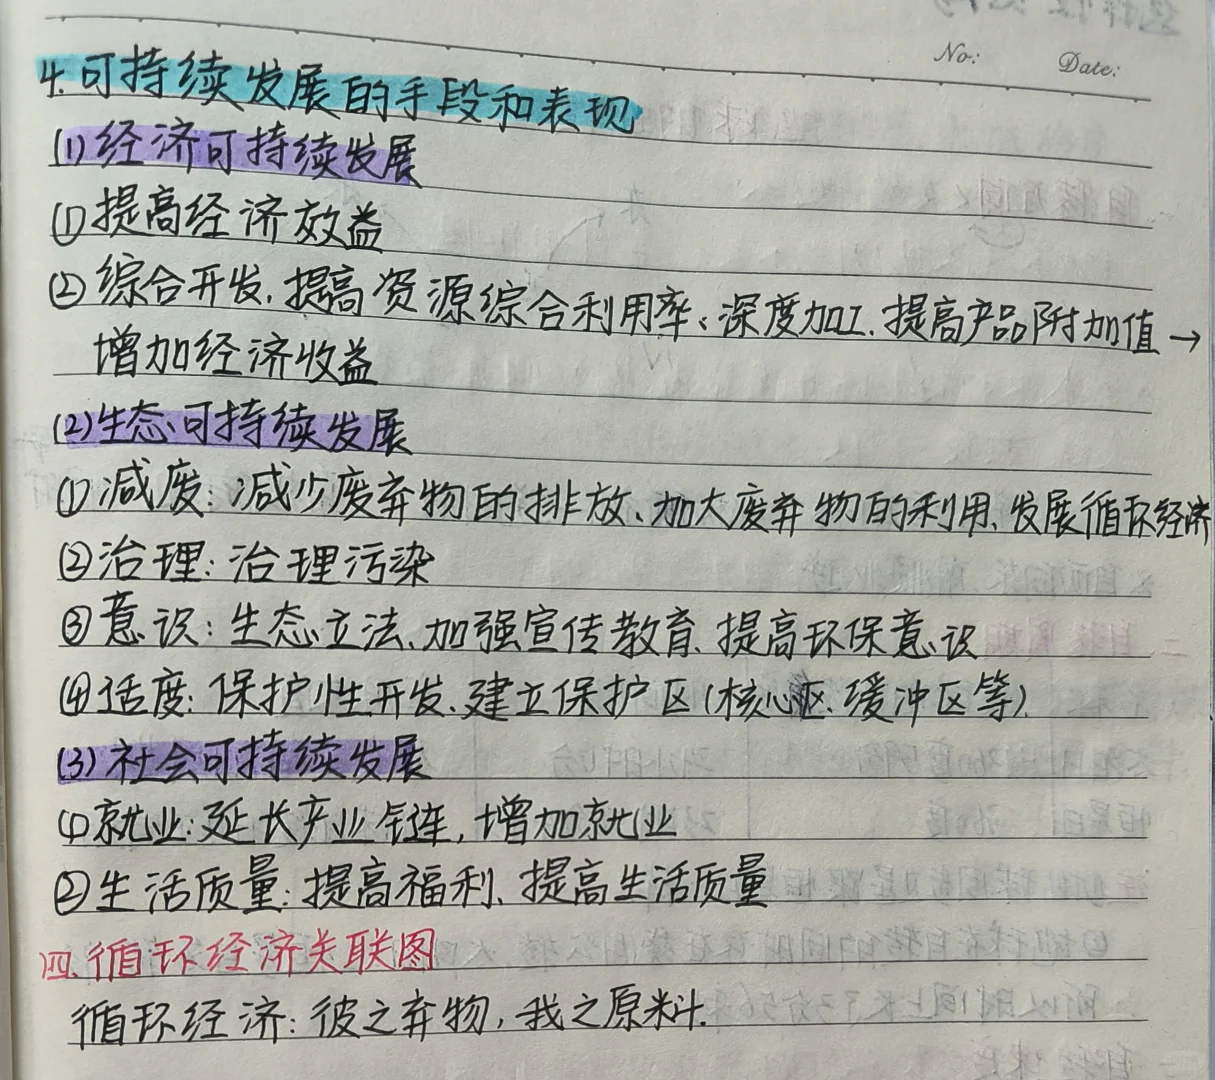 No:
Date:
4.可持续发展的手段和表现
(1)经济可持续发展
①提高经济效益
②综合开发、提高资源综合利用率、深度加工、提高产品附加值→
增加经济收益
(2)生态可持续发展
①减废:减少废弃物的排放、加大废弃物的利用、发展循环经济
②治理:治理污染
③意识:生态立法、加强宣传教育、提高环保意识
④适度:保护性开发、建立保护区(核心区、缓冲区等)
(3)社会可持续发展
①就业:延长产业链,增加就业
②生活质量:提高福利、提高生活质量
四、循环经济关联图
循环经济:彼之弃物,我之原料.